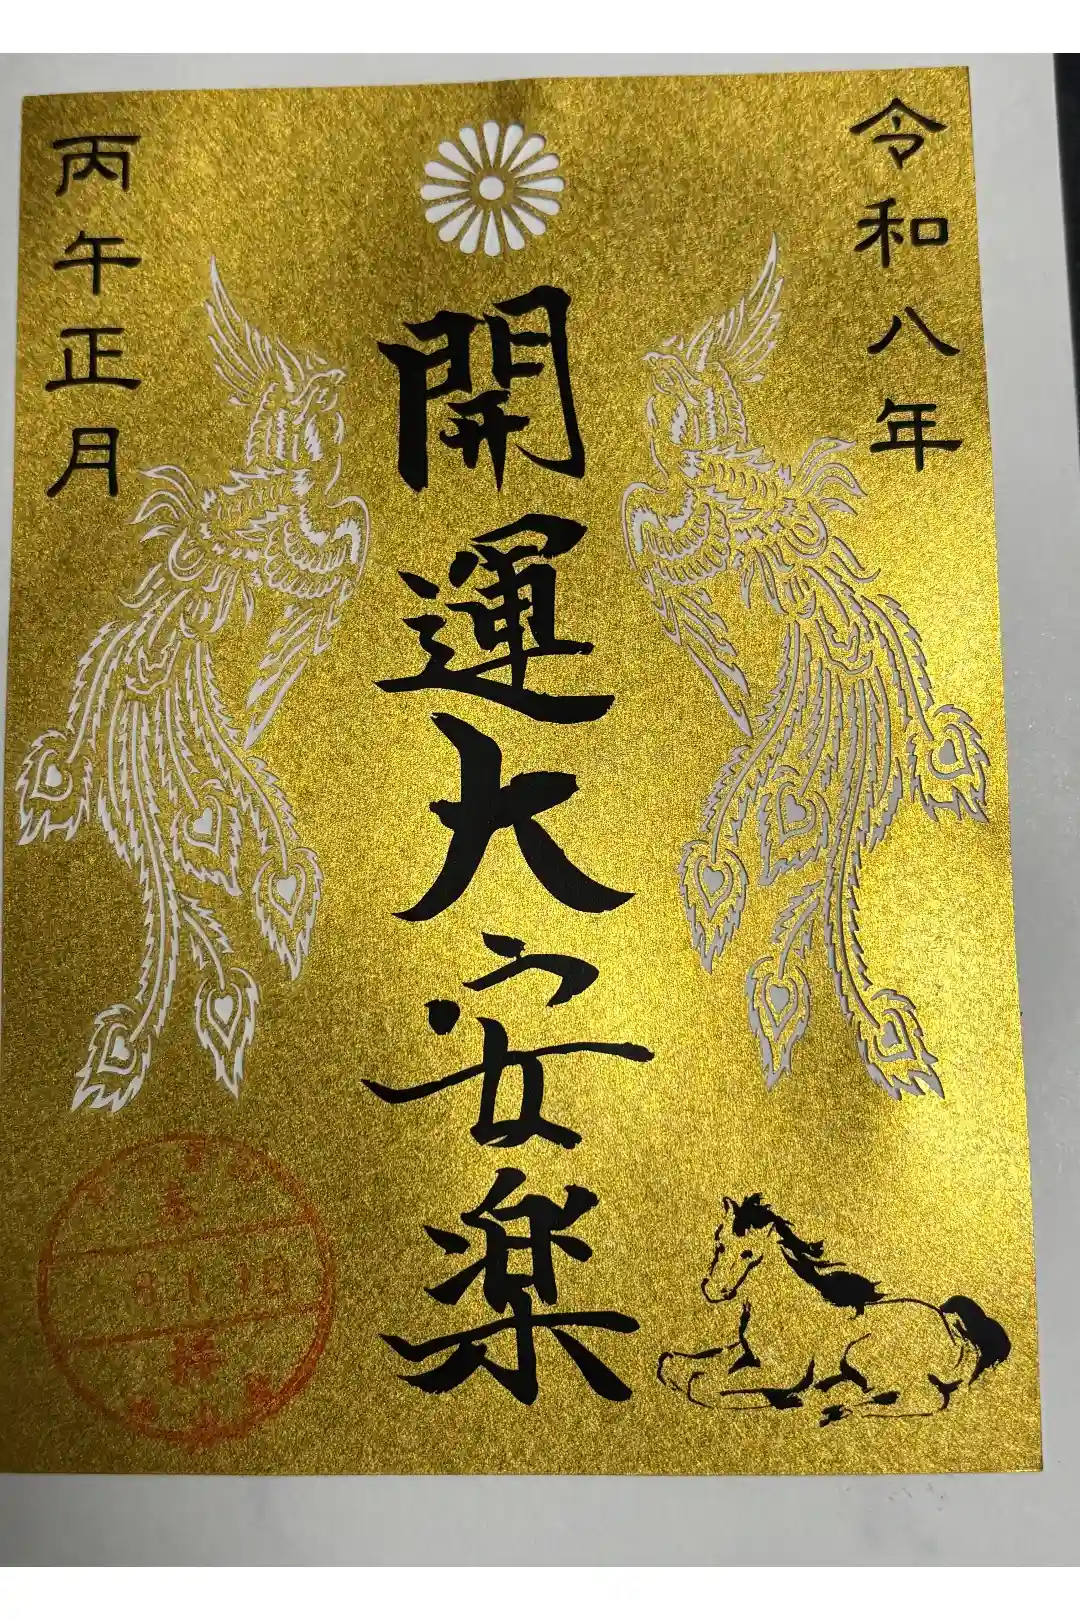 令和八年
開運大安楽
丙午正月
8.1.10